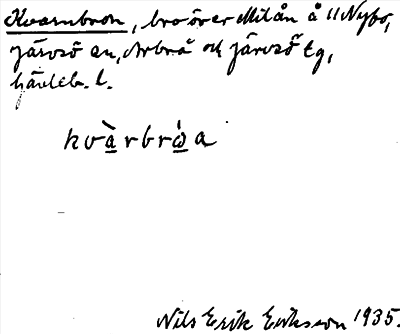 Kvarnbron, bro över Milån å 11 Nybo,
Järvsö sn, Arbrå och Järvsö tg,
Gävleb. l.
kvàrbróa
Nils Erik Eriksson 1935.